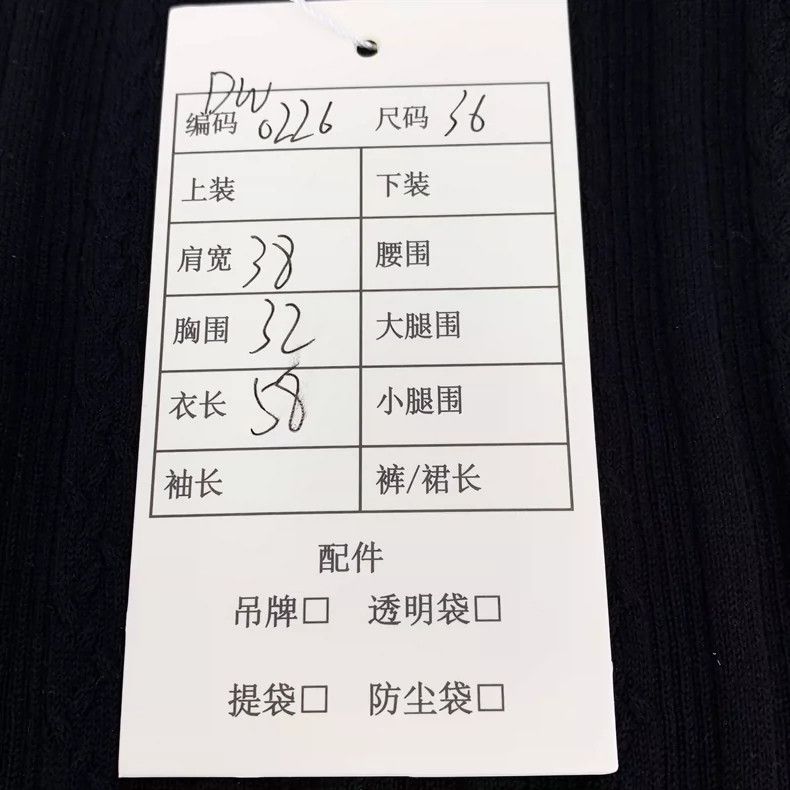 DW
编码 0226 尺码 36
上装 下装
肩宽 38 腰围
胸围 32 大腿围
衣长 58 小腿围
袖长 裤/裙长
配件
吊牌□ 透明袋□
提袋□ 防尘袋□